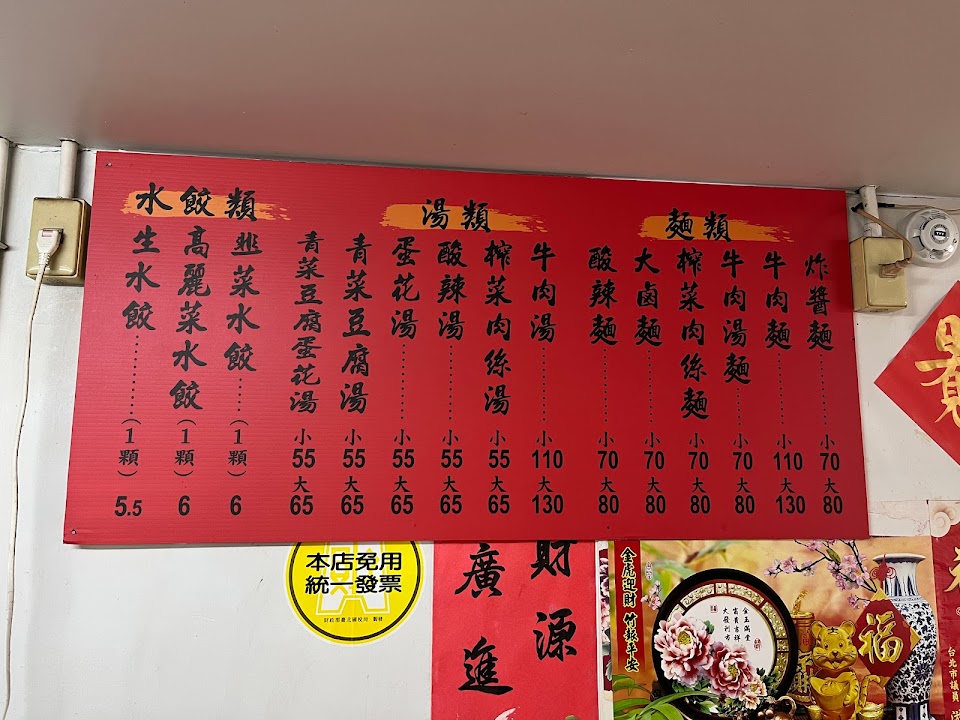 麵類
炸醬麵………小70大80
牛肉麵………小110大130
牛肉湯麵……小70大80
榨菜肉絲麵…小70大80
大鹵麵………小70大80
酸辣麵………小70大80
湯類
牛肉湯………小110大130
榨菜肉絲湯 小55大65
酸辣湯………小55大65
蛋花湯………小55大65
青菜豆腐湯 小55大65
青菜豆腐蛋花湯 小55大65
水餃類
韭菜水餃……(1顆)6
高麗菜水餃(1顆)6
生水餃………(1顆)5.5
本店免用
統一發票
財政部臺北國稅局 製發
財源
廣進
金虎迎財 竹報平安
金玉滿堂
富貴吉祥
大發利市
福
台北市議員